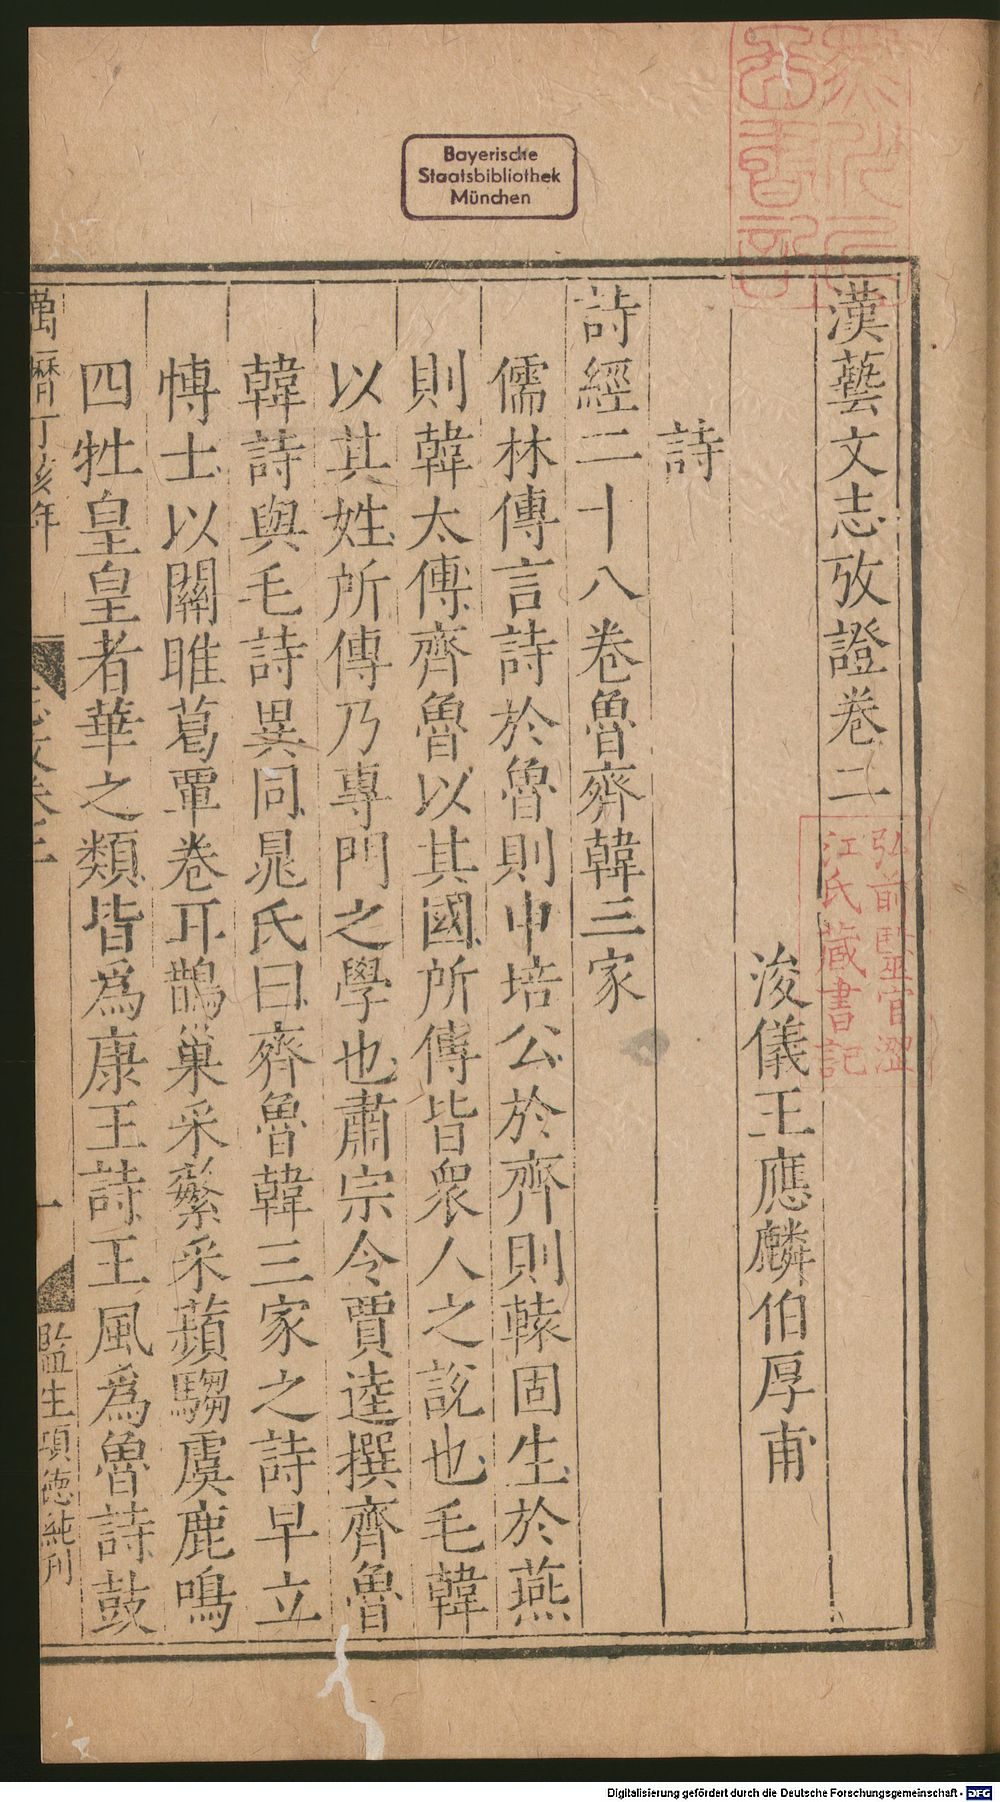 漢藝文志攷證卷二
浚儀王應麟伯厚甫
詩
詩經二十八卷魯齊韓三家
儒林傳言詩於魯則申培公於齊則轅固生於燕
則韓太傅齊魯以其國所傳皆衆人之說也毛韓
以其姓所傳乃專門之學也肅宗令賈逵撰齊魯
韓詩與毛詩異同晁氏曰齊魯韓三家之詩早立
博士以關雎葛覃卷耳鵲巢采蘩采蘋騶虞鹿鳴
四牡皇皇者華之類皆爲康王詩王風爲魯詩鼓
萬曆丁亥年
一
監生項德純刊
弘前醫官澀
江氏藏書記
Bayerische
Staatsbibliothek
München
Digitalisierung gefördert durch die Deutsche Forschungsgemeinschaft - DFG